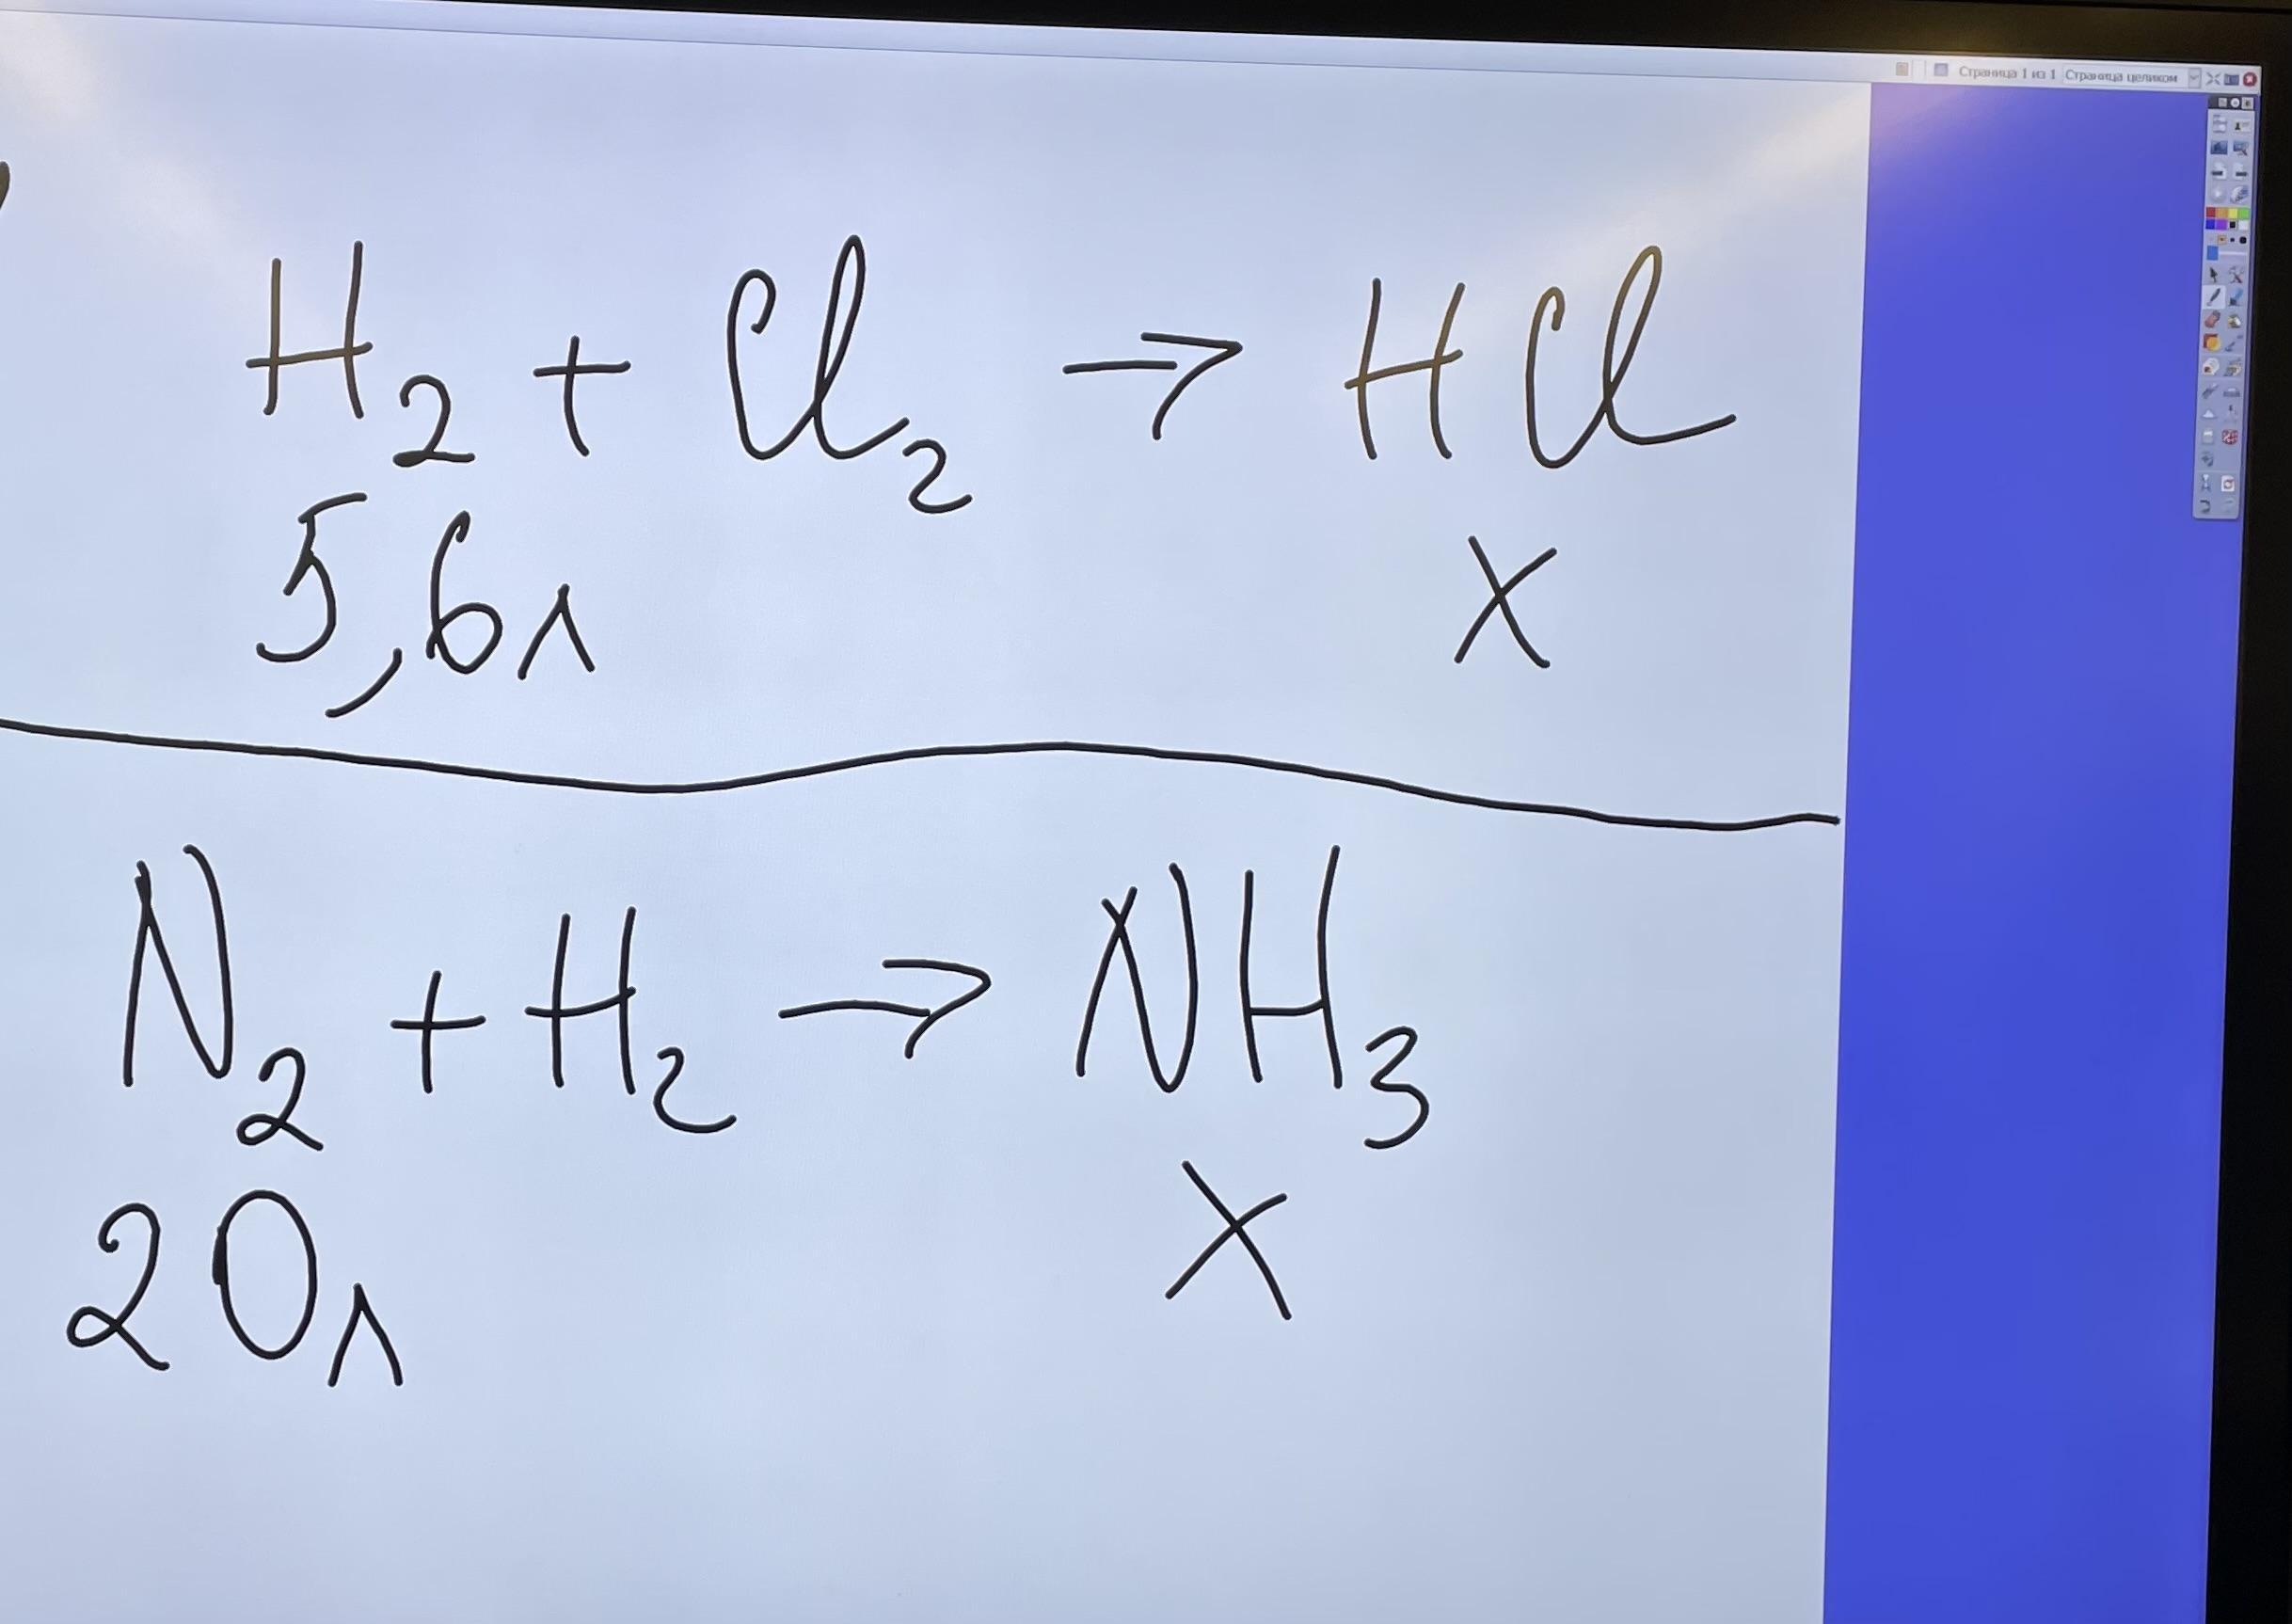 Страница 1 из 1 Страница целиком
H₂ + Cl₂ → HCl
5,6л x
N₂ + H₂ → NH₃
20л x